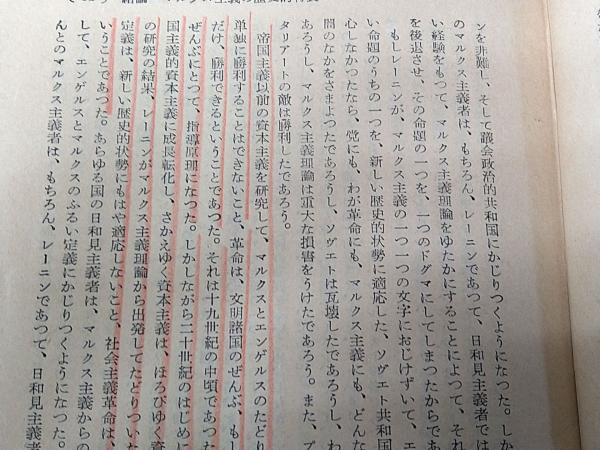 結論 マルクス主義の歴史的特質
ンを非難し、そして議会政治的共和国にかじりつくようになつた。しか
のマルクス主義者は、もちろん、レーニンであつて、日和見主義者では
い経験をもつて、マルクス主義理論をゆたかにすることによつて、それ
を後退させ、その命題の一つを、一つのドグマにしてしまつたからであ
もしレーニンが、マルクス主義の一つ一つの文字におじけずいて、エ
い命題のうちの一つを、新しい歴史的状勢に適応した、ソヴェト共和国
心しなかつたなら、党にも、わが革命にも、マルクス主義にも、どんな
闇のなかをさまよつたであろうし、ソヴェトは瓦壊したであろうし、わ
あろうし、マルクス主義理論は重大な損害をうけたであろう。また、プ
タリアートの敵は勝利したであろう。
帝国主義以前の資本主義を研究して、マルクスとエンゲルスのたどり
単独に勝利することはできないこと、革命は、文明諸国のぜんぶ、もし
だけ、勝利できるということであつた。それは十九世紀の中頃であつた
ぜんぶにとつて、指導原理になつた。しかしながら二十世紀のはじめに
国主義的資本主義に成長転化し、さかえゆく資本主義は、ほろびゆく資
の研究の結果、レーニンがマルクス主義理論から出発してたどりついた
定義は、新しい歴史的状勢にもはや適応しないこと、社会主義革命は、
いうことであつた。あらゆる国の日和見主義者は、マルクス主義からの
して、エンゲルスとマルクスのふるい定義にかじりつくようになつた。
んとのマルクス主義者は、もちろん、レーニンであつて、日和見主義者